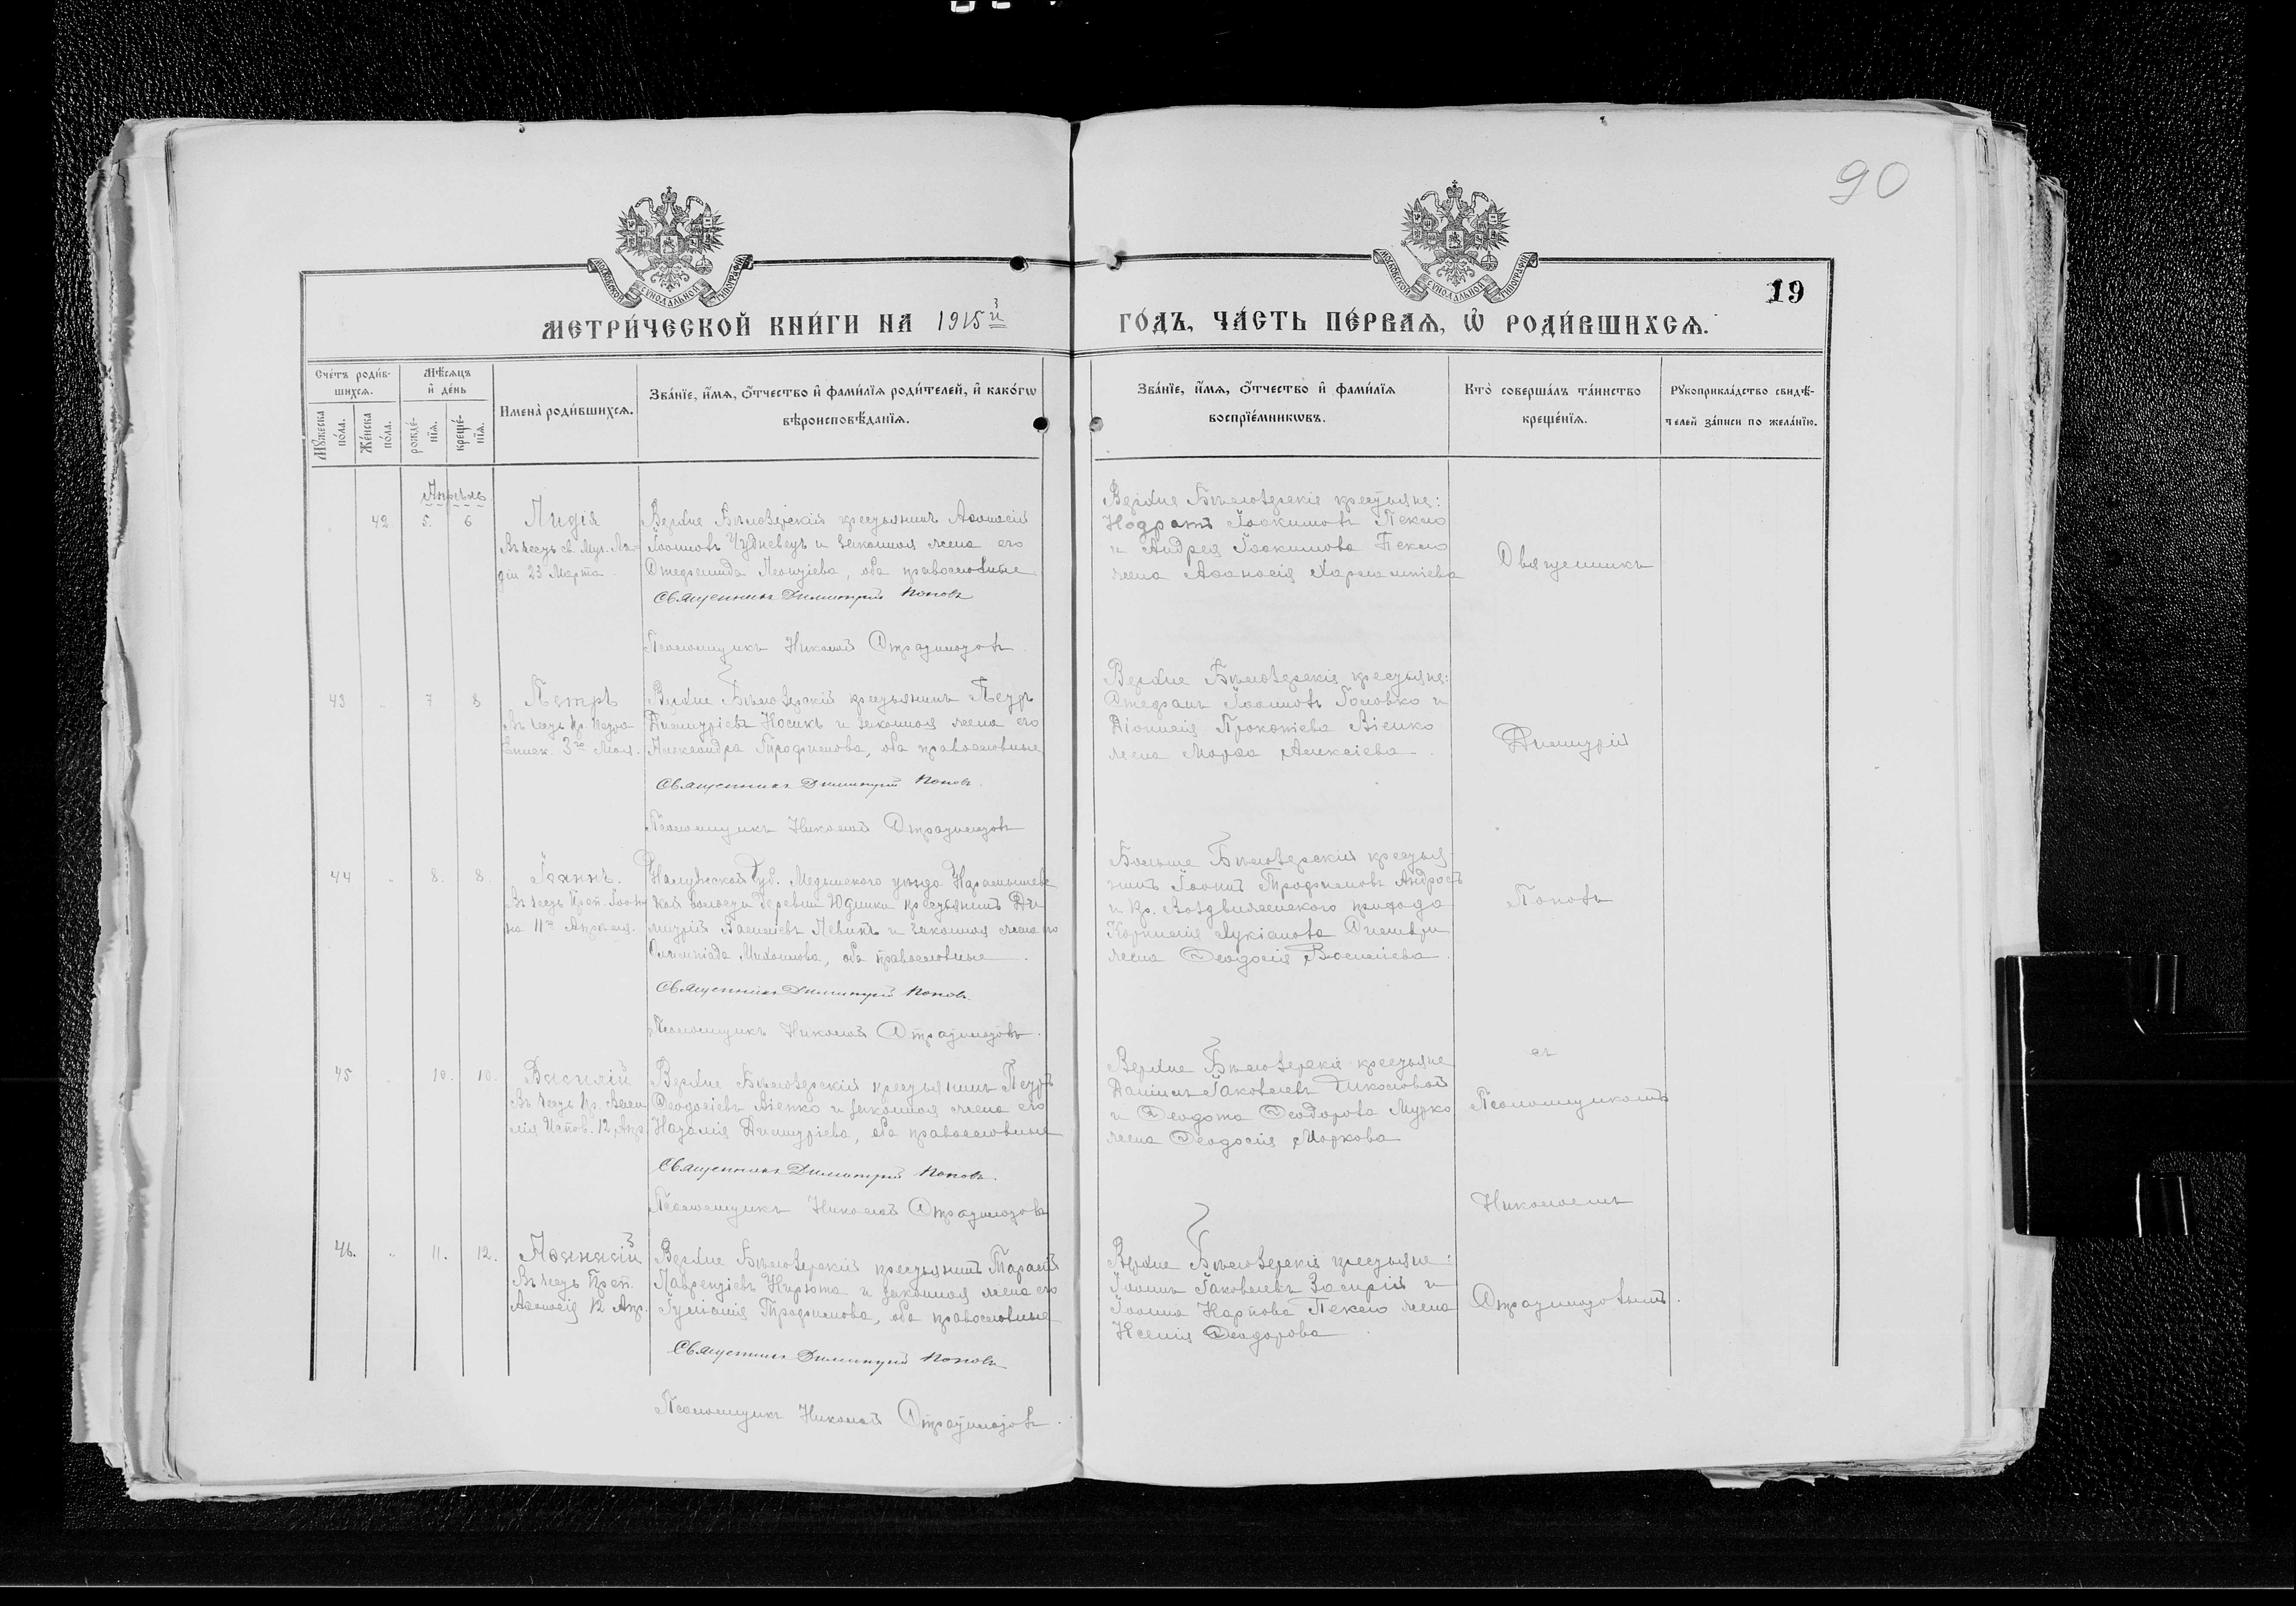 90
19
МЕТРИ́ЧЕСКОЙ КНИ́ГИ НА 1915й
ГО́ДЪ, ЧА́СТЬ ПЕ́РВАЯ, Ѡ҆ РОДИ́ВШИХСЯ.
Сче́тъ роди́в-
шихся.
Мꙋ́жеска по́ла.
Же́нска по́ла.
Мѣ́сяцъ
и҆ де́нь
рожде́-
нїя.
креще́-
нїя.
Имена̀ роди́вшихся.
Зва́нїе, и҆́мя, ѻ҆́тчество и҆ фами́лїя роди́телей, и҆ како́гѡ
вѣроисповѣ́данїя.
Зва́нїе, и҆́мя, ѻ҆́тчество и҆ фами́лїя
воспрїе́мникѡвъ.
Кто̀ соверша́лъ та́инство
креще́нїя.
Рꙋкоприкла́дство свидѣ́-
телей за́писи по жела́нїю.
Апрѣль
42 5. 6
Лидія
Въ честь св. Муч. Ли-
діи 23 Марта.
Верхне Бѣлозерскій крестьянинъ Аѳанасій
Іоанновъ Чудневецъ и законная жена его
Стефанида Леонтіева, оба православные
Священникъ Димитрій Поповъ
Псаломщикъ Николай
Верхне Бѣлозерскіе крестьяне:
Кодратъ Іоакимовъ Пекло
и Андрея Іоакимова Пекло
жена Аѳанасія Харлампіева
Священникъ
43 7 8
Петръ
Въ честь пр. Петра
Еписк. 3го Іюля.
Верхне Бѣлозерскій крестьянинъ Петръ
Димитріевъ Носикъ и законная жена его
Александра Трофимова, оба православные
Священникъ Димитрій Поповъ.
Псаломщикъ Николай
Верхне Бѣлозерскіе крестьяне:
Стефанъ Іоанновъ Головко и
Діонисія Прокопіева Вѣнко
жена Марѳа Алексіева.
Димитрій
44 8. 8.
Іоаннъ.
Въ честь Преп. Іоан-
на 11го Апрѣля.
Калужской Губ. Медынского уѣзда
кой волости деревни Юдинки крестьянинъ Ди
митрій Левинъ и законная жена его
Олимпіада Михаилова, оба православные.
Священникъ Димитрій Поповъ.
Псаломщикъ Николай
Больше Бѣлозерскій крестья-
нинъ Іоаннъ Трофимовъ
и Кр. Воздвиженского прихода
Корнилія Лукіанова
жена Ѳеодосія Васильева.
Поповъ
45 10. 10.
Василій
Въ честь пр. Васи
лія Испов. 12 Апр.
Верхне Бѣлозерскій крестьянинъ Петръ
Ѳеодосіевъ Вѣнко и законная жена его
Наталія Димитріева, оба православные
Священникъ Димитрій Поповъ.
Псаломщикъ Николай
Верхне Бѣлозерскіе крестьяне
Даніилъ Іаковлевъ
и Ѳеодота Ѳеодорова Мурко
жена Ѳеодосія Маркова
съ
Псаломщикомъ
Николаемъ
46. 11. 12.
Аѳанасій
Въ честь Преп.
Аѳанасія 12 Апр.
Верхне Бѣлозерскій крестьянинъ Тарасій
Лаврентіевъ Кирюта и законная жена его
Іуліанія Трофимова, оба православные
Священникъ Димитрій Поповъ
Псаломщикъ Николай
Верхне Бѣлозерскіе крестьяне:
Іоаннъ Іаковлевъ и
Іоанна Карпова Пекло жена
Ксенія Ѳеодорова